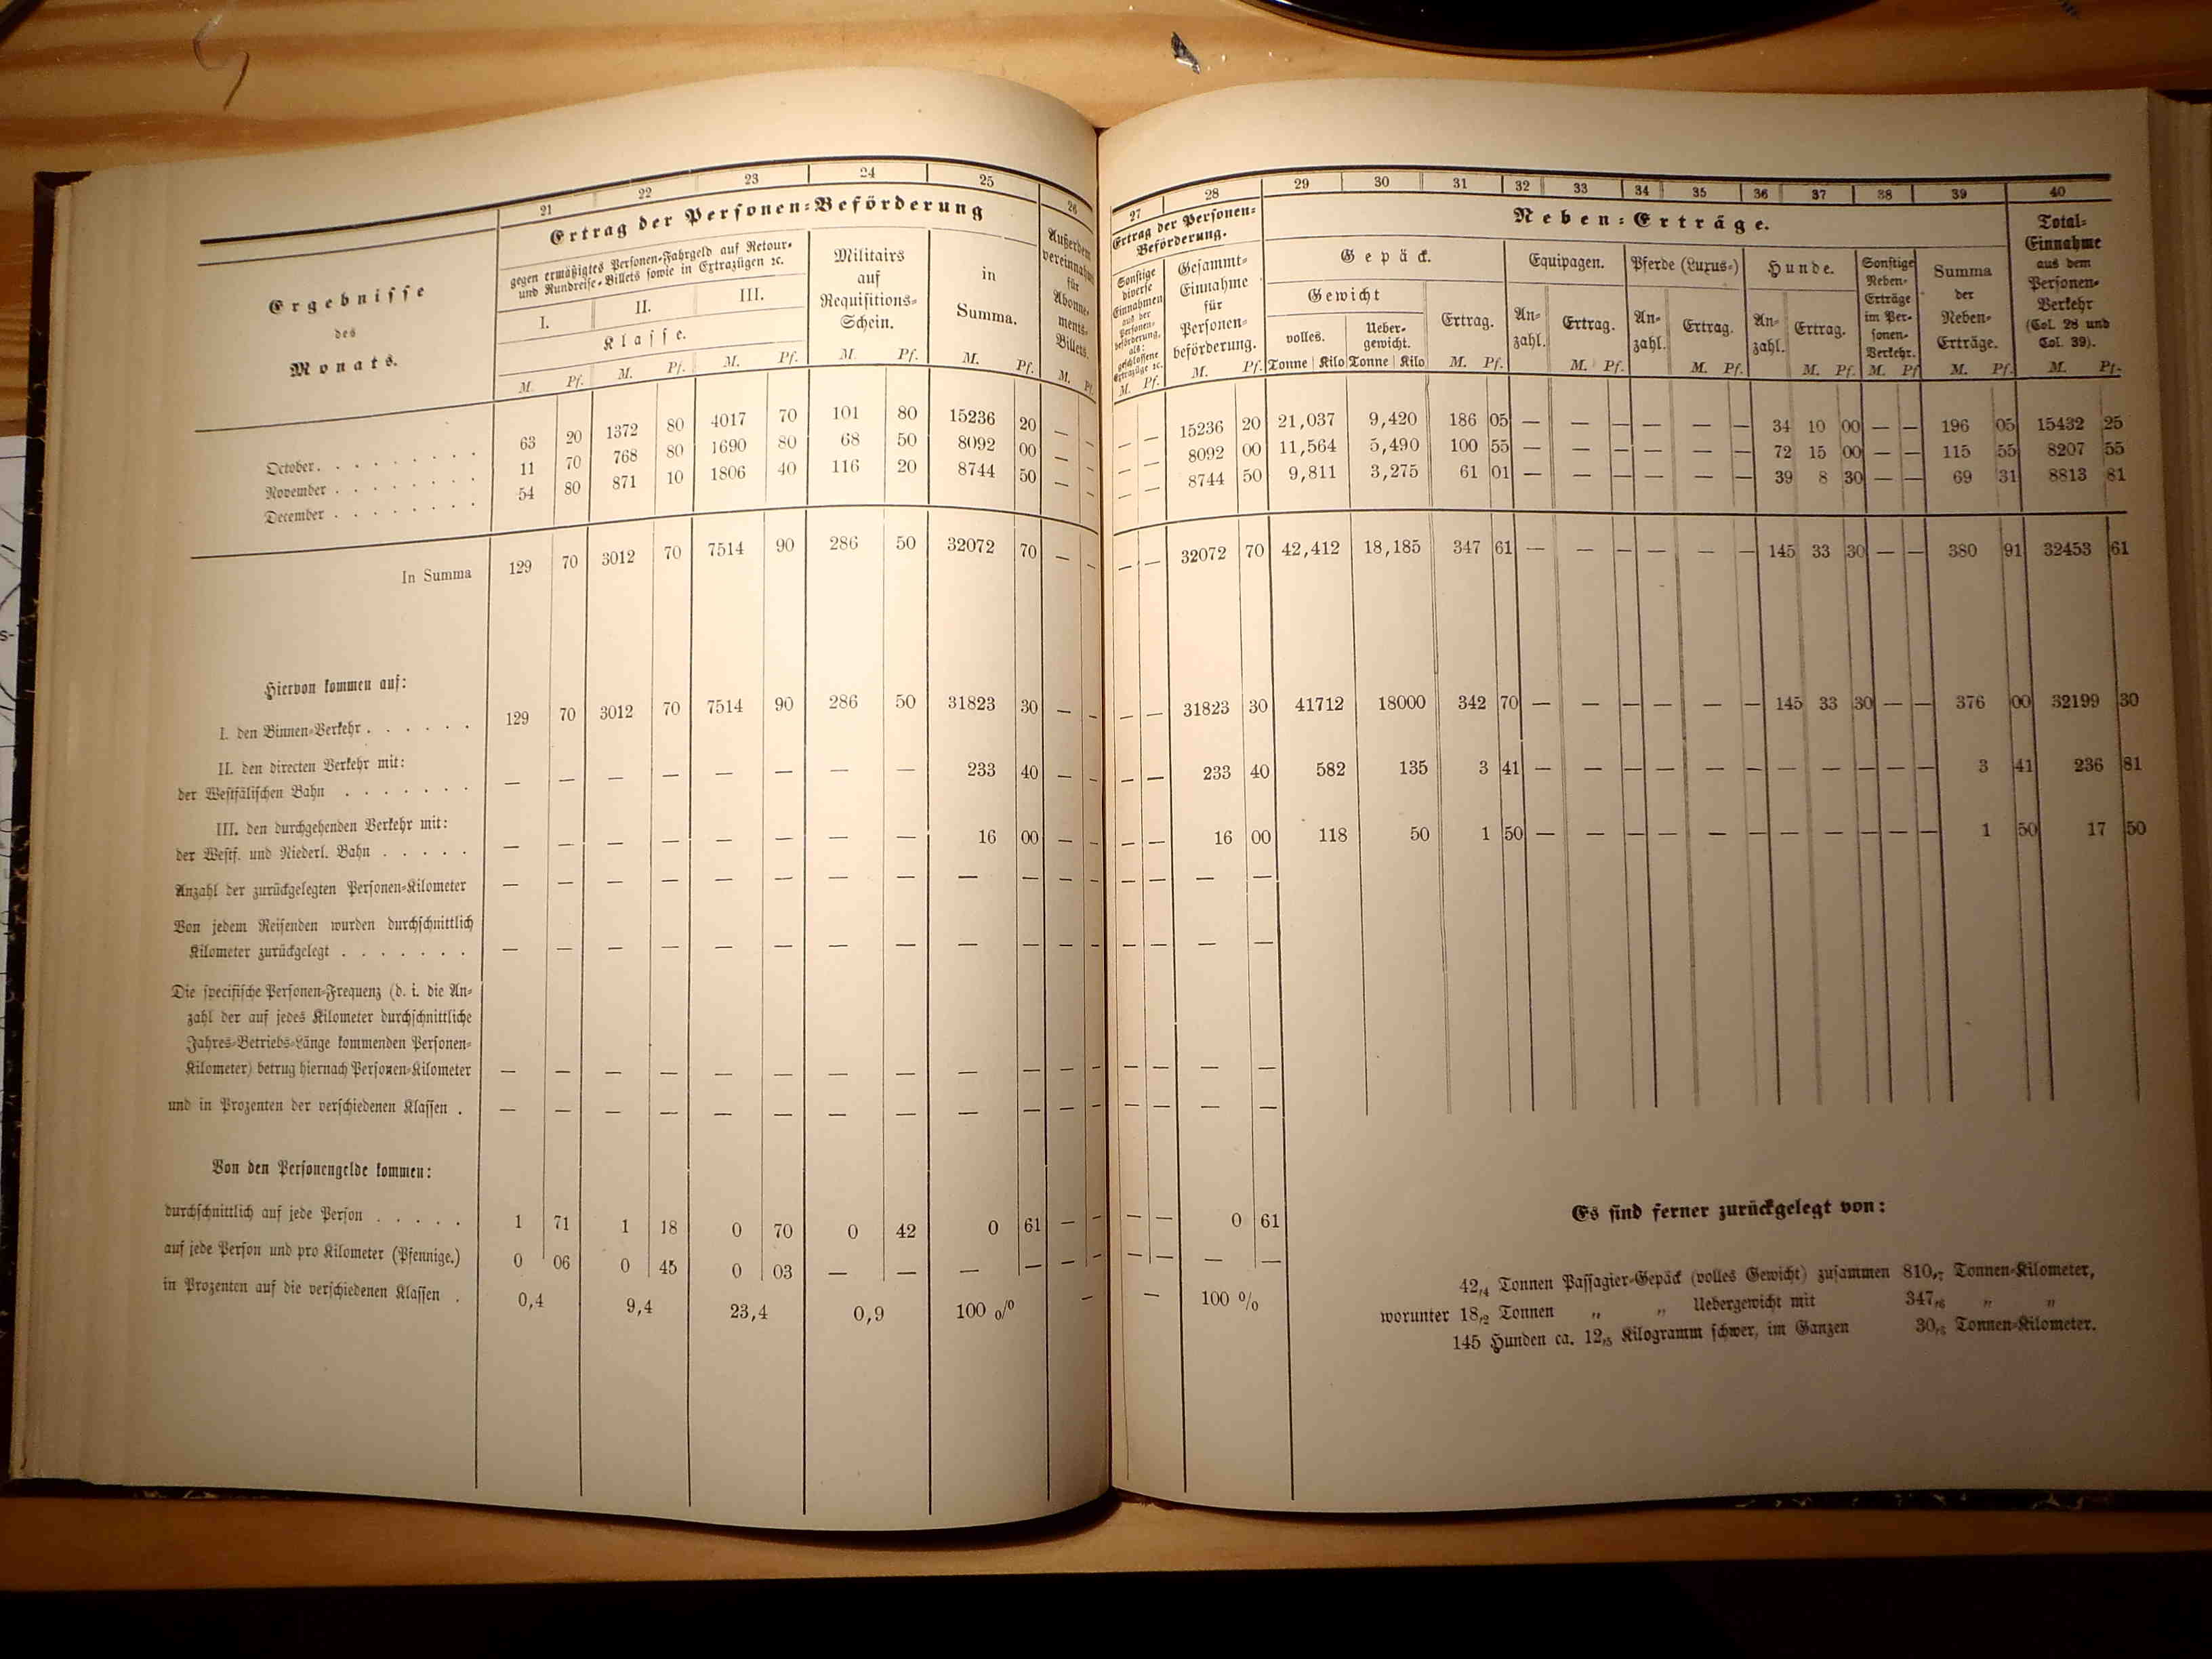 21 22 23 24 25 26
Ertrag der Personen-Beförderung
Ergebnisse
des
Monats.
gegen ermäßigtes Personen-Fahrgeld auf Retour-
und Rundreise-Billets sowie in Extrazügen ꝛc.
I. II. III.
Klasse.
Militairs
auf
Requisitions-
Schein.
in
Summa.
Außerdem
vereinnahmt
für
Abonne-
ments-
Billets.
M. Pf. M. Pf. M. Pf. M. Pf. M. Pf. M. Pf.
October. 63 20 1372 80 4017 70 101 80 15236 20 — —
November 11 70 768 80 1690 80 68 50 8092 00 — —
December 54 80 871 10 1806 40 116 20 8744 50 — —
In Summa 129 70 3012 70 7514 90 286 50 32072 70 — —
Hiervon kommen auf:
I. den Binnen-Verkehr 129 70 3012 70 7514 90 286 50 31823 30 — —
II. den directen Verkehr mit:
der Westfälischen Bahn — — — — — — — — 233 40 — —
III. den durchgehenden Verkehr mit:
der Westf. und Niederl. Bahn — — — — — — — — 16 00 — —
Anzahl der zurückgelegten Personen-Kilometer — — — — — — — — — — — —
Von jedem Reisenden wurden durchschnittlich
Kilometer zurückgelegt — — — — — — — — — — — —
Die specifische Personen-Frequenz (d. i. die An-
zahl der auf jedes Kilometer durchschnittliche
Jahres-Betriebs-Länge kommenden Personen-
Kilometer) betrug hiernach Personen-Kilometer — — — — — — — — — — — —
und in Prozenten der verschiedenen Klassen . — — — — — — — — — — — —
Von den Personengelde kommen:
durchschnittlich auf jede Person 1 71 1 18 0 70 0 42 0 61 — —
auf jede Person und pro Kilometer (Pfennige.) 0 06 0 45 0 03 — — — — — —
in Prozenten auf die verschiedenen Klassen . 0,4 9,4 23,4 0,9 100 % —
27 28 29 30 31 32 33 34 35 36 37 38 39 40
Ertrag der Personen-
Beförderung.
Neben-Erträge.
Total-
Einnahme
aus dem
Personen-
Verkehr
(Col. 28 und
Col. 39).
Sonstige
diverse
Einnahmen
aus der
Personen-
beförderung,
als:
geschlossene
Extrazüge ꝛc.
Gesammt-
Einnahme
für
Personen-
beförderung.
Gepäck.
Gewicht
volles.
Ueber-
gewicht.
Ertrag.
Equipagen.
An-
zahl.
Ertrag.
Pferde (Luxus-)
An-
zahl.
Ertrag.
Hunde.
An-
zahl.
Ertrag.
Sonstige
Neben-
Erträge
im Per-
sonen-
Verkehr.
Summa
der
Neben-
Erträge.
M. Pf. M. Pf. Tonne Kilo Tonne Kilo M. Pf. M. Pf. M. Pf. M. Pf. M. Pf. M. Pf. M. Pf.
— — 15236 20 21,037 9,420 186 05 — — — — — — 34 10 00 — — 196 05 15432 25
— — 8092 00 11,564 5,490 100 55 — — — — — — 72 15 00 — — 115 55 8207 55
— — 8744 50 9,811 3,275 61 01 — — — — — — 39 8 30 — — 69 31 8813 81
— — 32072 70 42,412 18,185 347 61 — — — — — — 145 33 30 — — 380 91 32453 61
— — 31823 30 41712 18000 342 70 — — — — — — 145 33 30 — — 376 00 32199 30
— — 233 40 582 135 3 41 — — — — — — — — — — — 3 41 236 81
— — 16 00 118 50 1 50 — — — — — — — — — — — 1 50 17 50
— — — —
— — — —
— — — —
— — — —
— — 0 61
— — — —
— 100 %
Es sind ferner zurückgelegt von:
42,4 Tonnen Passagier-Gepäck (volles Gewicht) zusammen Tonnen-Kilometer,
worunter 18,2 Tonnen „ „ Uebergewicht mit 347,6 „ „
145 Hunden ca. 12,5 Kilogramm schwer, im Ganzen Tonnen-Kilometer.